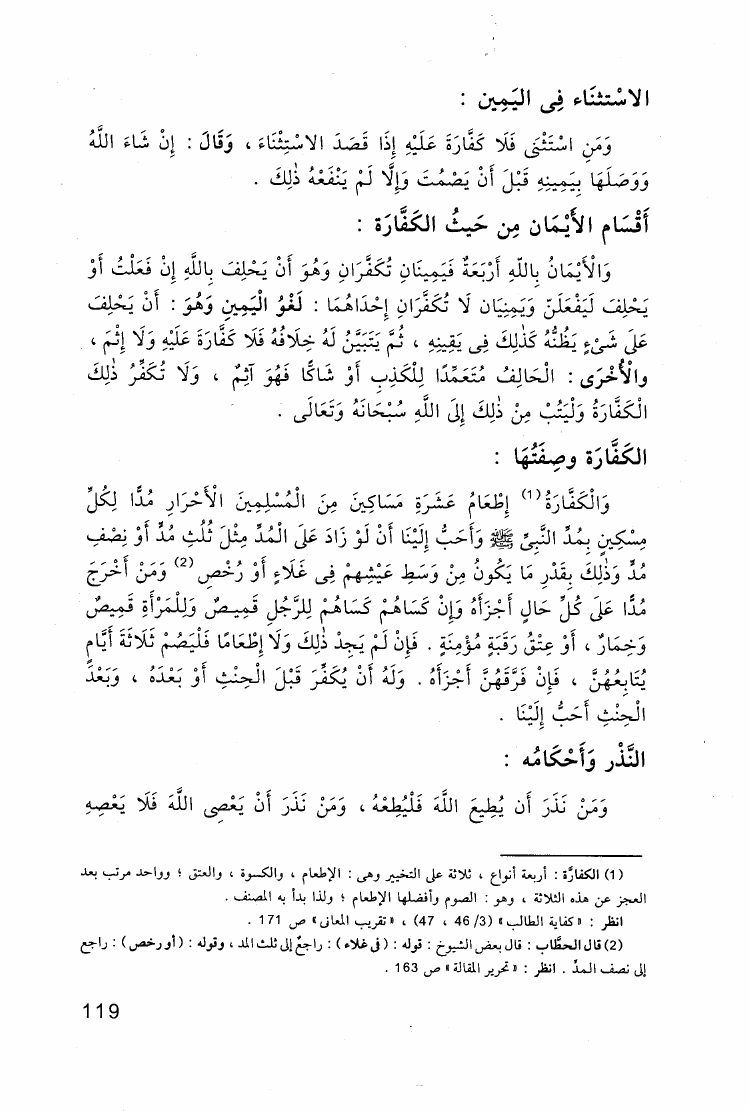 الاسْتثنَاء فِى اليَمِين :
وَمَنِ اسْتَثْنَى فَلَا كَفَّارَةَ عَلَيْهِ إِذَا قَصَدَ الاسْتِثْنَاءَ ، وَقَالَ : إِنْ شَاءَ اللَّهُ
وَوَصَلَهَا بِيَمِينِهِ قَبْلَ أَنْ يَصْمُتَ وَإِلَّا لَمْ يَنْفَعْهُ ذٰلِكَ .
أَقْسَام الأَيْمَان مِن حَيثُ الكَفَّارَة :
وَالْأَيْمَانُ بِاللَّهِ أَرْبَعَةٌ فَيَمِينَانِ تُكَفَّرَانِ وَهُوَ أَنْ يَحْلِفَ بِاللَّهِ إِنْ فَعَلْتُ أَوْ
يَحْلِفَ لَيَفْعَلَنَّ وَيَمِنيَان لَا تُكَفَّرَانِ إِحْدَاهُمَا : لَغْوُ الْيَمِينِ وَهُوَ : أَنْ يَحْلِفَ
عَلَى شَىْءٍ يَظُنُّهُ كَذٰلِكَ فِى يَقِينِهِ ، ثُمَّ يَتَبَيَّنُ لَهُ خِلَافُهُ فَلَا كَفَّارَةَ عَلَيْهِ وَلَا إِثْمَ ،
وَالْأُخْرَى : الْحَالِفُ مُتَعَمِّدًا لِلْكَذِبِ أَوْ شَاكًّا فَهُوَ آثِمٌ ، وَلَا تُكَفِّرُ ذٰلِكَ
الْكَفَّارَةُ وَلْيَتُبْ مِنْ ذٰلِكَ إِلَى اللَّهِ سُبْحَانَهُ وَتَعَالَى .
الكَفَّارَة وصِفَتُهَا :
وَالْكَفَّارَةُ (1) إِطْعَامُ عَشَرَةِ مَسَاكِينَ مِنَ الْمُسْلِمِينَ الْأَحْرَارِ مُدًّا لِكُلِّ
مِسْكِينٍ بِمُدِّ النَّبِىِّ ﷺ وَأَحَبُّ إِلَيْنَا أَنْ لَوْ زَادَ عَلَى الْمُدِّ مِثْلَ ثُلُثِ مُدٍّ أَوْ نِصْفِ
مُدٍّ وَذٰلِكَ بِقَدْرِ مَا يَكُونُ مِنْ وَسَطِ عَيْشِهِمْ فِى غَلَاءٍ أَوْ رُخْصٍ (2) وَمَنْ أَخْرَجَ
مُدًّا عَلَى كُلِّ حَالٍ أَجْزَأَهُ وَإِنْ كَسَاهُمْ كَسَاهُمْ لِلرَّجُلِ قَمِيصٌ وَلِلْمَرْأَةِ قَمِيصٌ
وَخِمَارٌ ، أَوْ عِتْقُ رَقَبَةٍ مُؤْمِنَةٍ . فَإِنْ لَمْ يَجِدْ ذٰلِكَ وَلَا إِطْعَامًا فَلْيَصُمْ ثَلَاثَةَ أَيَّامٍ
يُتَابِعُهُنَّ ، فَإِنْ فَرَّقَهُنَّ أَجْزَأَهُ . وَلَهُ أَنْ يُكَفِّرَ قَبْلَ الْحِنْثِ أَوْ بَعْدَهُ ، وَبَعْدَ
الْحِنْثِ أَحَبُّ إِلَيْنَا .
النَّذْر وَأَحْكَامُه :
وَمَنْ نَذَرَ أَن يُطِيعَ اللَّهَ فَلْيُطِعْهُ ، وَمَنْ نَذَرَ أَنْ يَعْصِىَ اللَّهَ فَلَا يَعْصِهِ
(1) الكفارَّة : أربعة أنواع ، ثلاثة على التخيير وهى : الإطعام ، والكسوة ، والعتق ؛ وواحد مرتب بعد
العجز عن هذه الثلاثة ، وهو : الصوم وأفضلها الإطعام ؛ ولذا بدأ به المصنف .
انظر : « كفاية الطالب » (3/ 46 ، 47) ، « تقريب المعانى » ص 171 .
(2) قال الحطَّاب : قال بعض الشيوخ : قوله : ( فى غلاء ) : راجعٌ إلى ثلث المد ، وقوله : ( أو رخص ) : راجع
إلى نصف المدِّ . انظر : « تحرير المقالة » ص 163 .
119